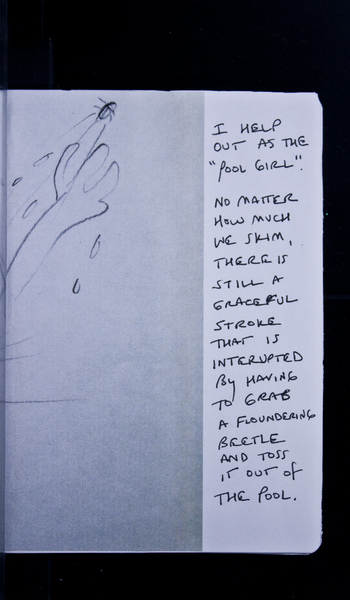 I HELP
OUT AS THE
"POOL GIRL".
NO MATTER
HOW MUCH
WE SKIM,
THERE IS
STILL A
GRACEFUL
STROKE
THAT IS
INTERUPTED
BY HAVING
TO GRAB
A FLOUNDERING
BEETLE
AND TOSS
IT OUT OF
THE POOL.